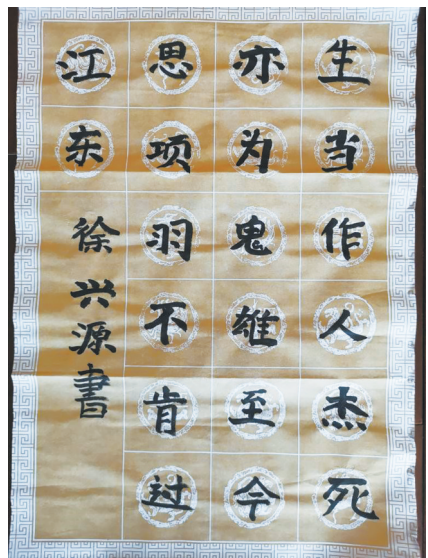 生当作人杰死
亦为鬼雄至今
思项羽不肯过
江东
徐兴源書